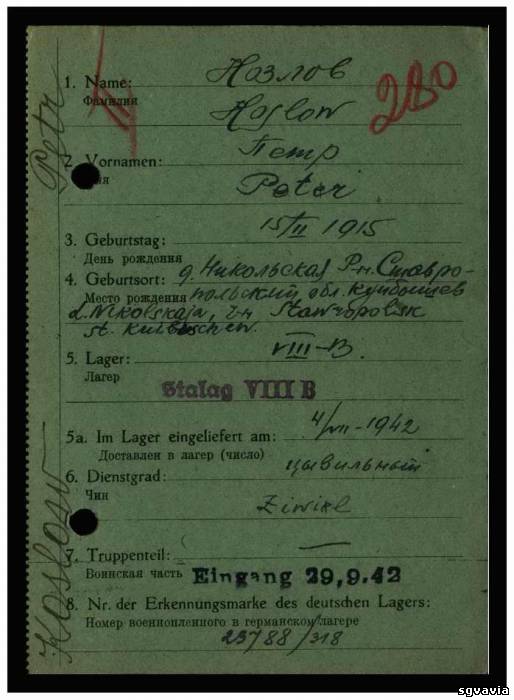 280
Назлов
1. Name:
Фамилия
Hoslow
Петр
2. Vornamen:
Peter
15/II 1915
3. Geburtstag:
День рождения
4. Geburtsort: д. Никольская Р-н. Ставро-
Место рождения польский обл. Куйбышев
d. Nikolskaja, Stawropolsk
VIII-B.
5. Lager:
Лагерь
Stalag VIII B
5a. Im Lager eingeliefert am: 1942
Доставлен в лагерь (число)
6. Dienstgrad: цывильный
Чин
Ziwikl
7. Truppenteil: —
Воинская часть Eingang 29,9.42
8. Nr. der Erkennungsmarke des deutschen Lagers:
Номер военнопленного в германском лагере
23788/318
Petr
Koslow
sgvavia